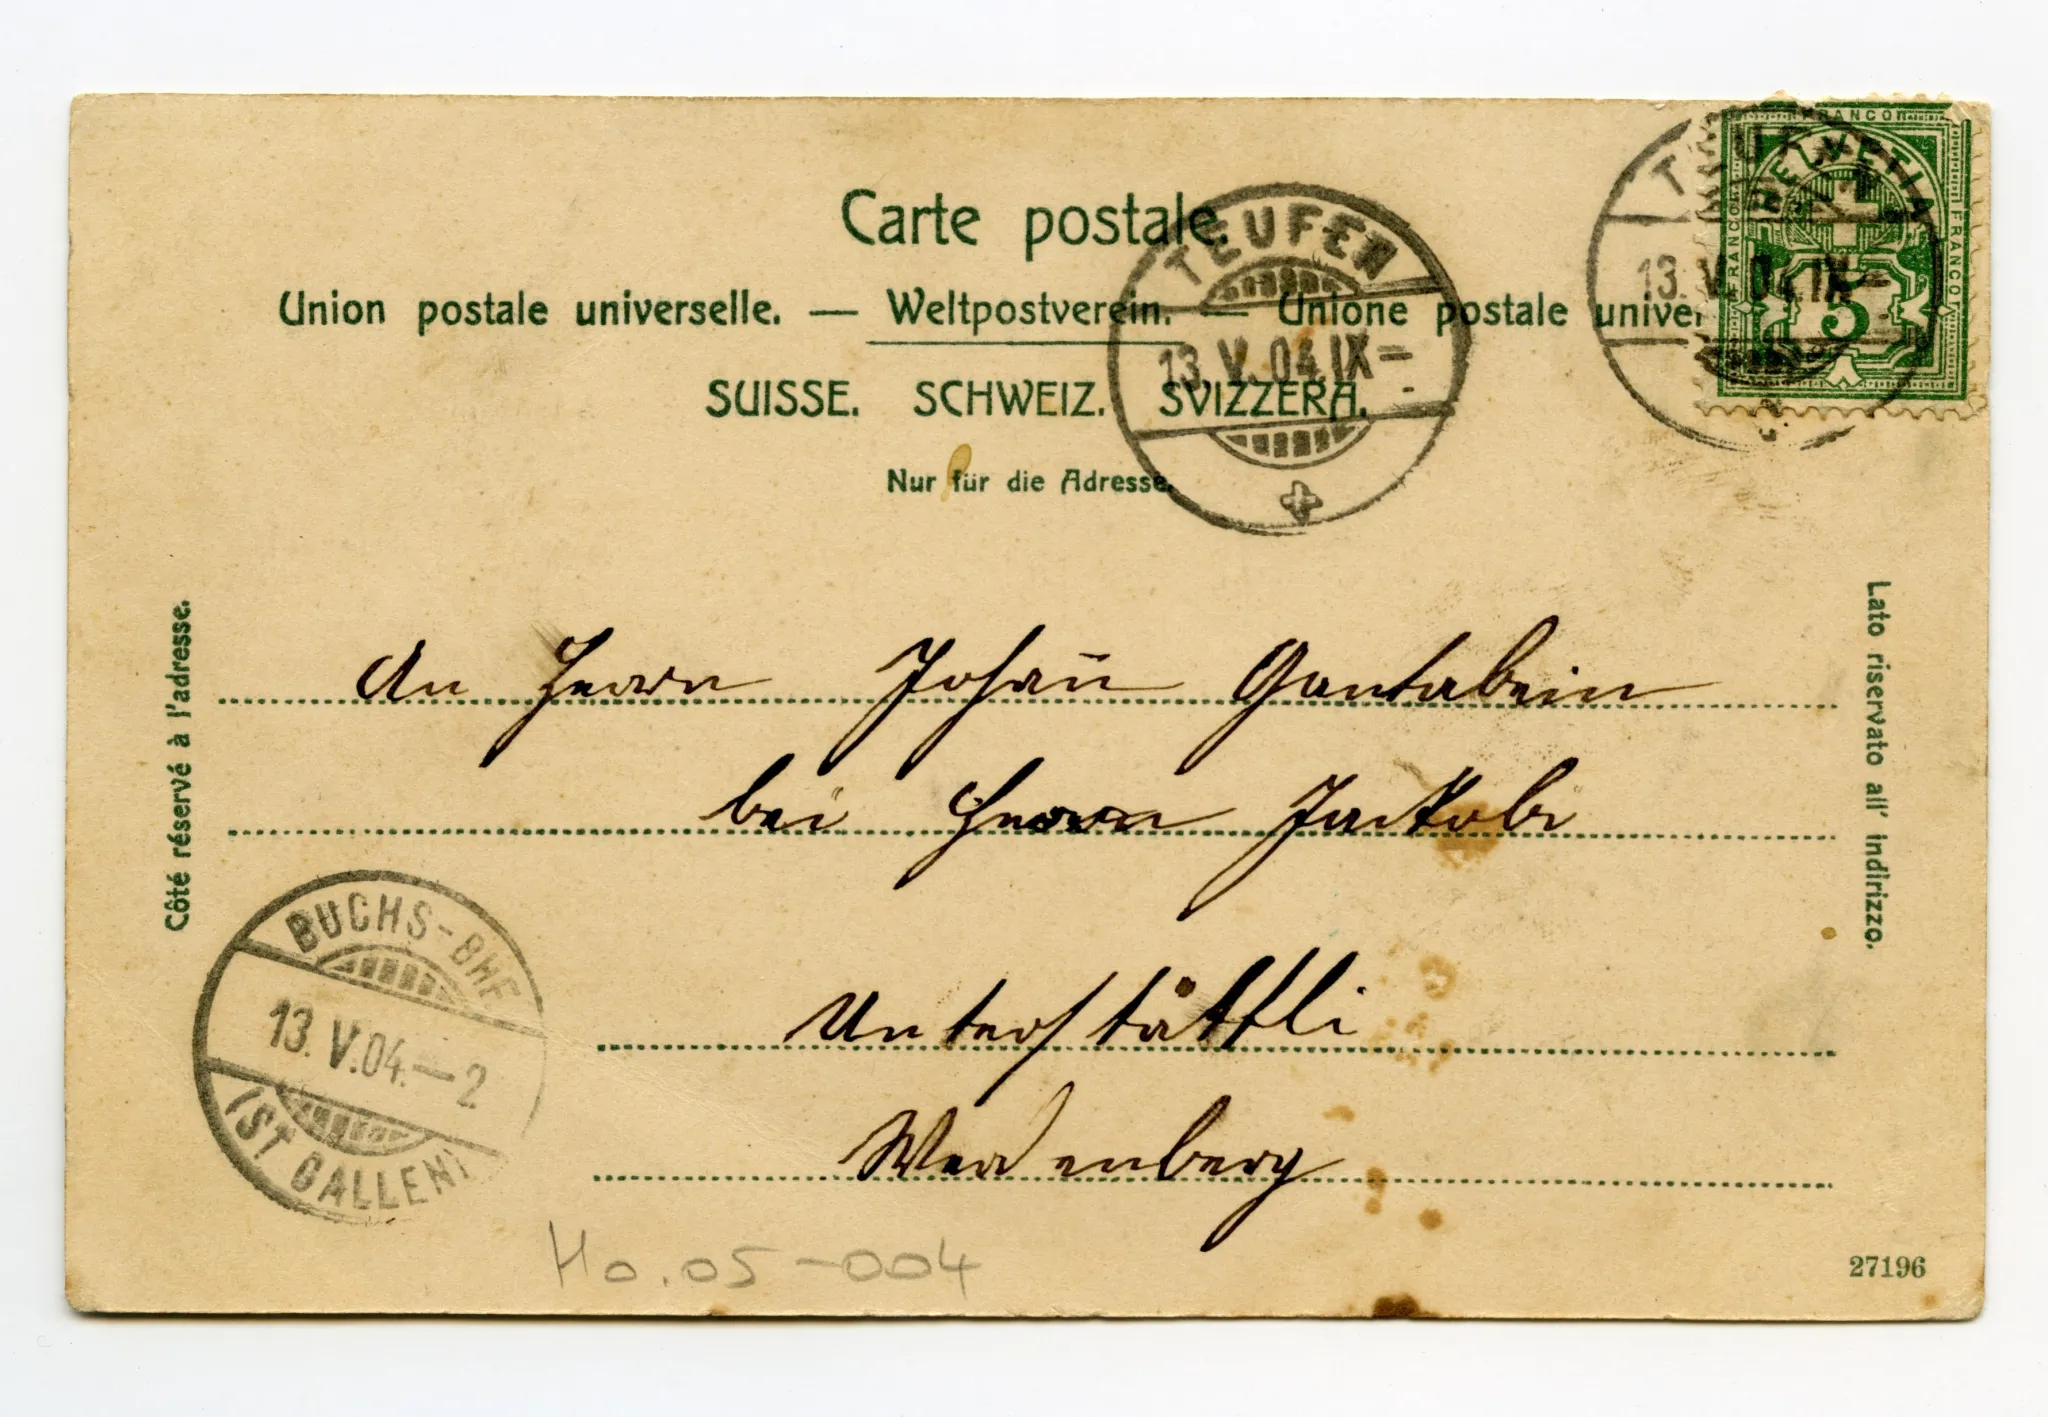 Carte postale.
Union postale universelle. — Weltpostverein. — Unione postale univer
SUISSE. SCHWEIZ. SVIZZERA.
Nur für die Adresse.
TEUFEN
13. V. 04. IX–
13. V. 04. IX–
FRANCO
FRANCO
FRANCO
HELVETIA
5
Côté réservé à l'adresse.
Lato riservato all' indirizzo.
An Herrn Johan̅ Gantenbein
bei Herrn Jackob
Unterstüttli
Werdenberg
BUCHS-BHF
13. V. 04. — 2
(ST GALLEN)
Ho. 05-004
27196